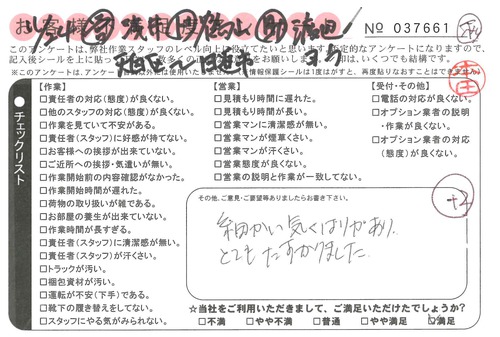 № 037661
このアンケートは、弊社作業スタッフのレベル向上に役立てたいと思います。
記入後シールを上に貼っ
いつでも結構です。
チェックリスト
【作業】
□責任者の対応(態度)が良くない。
□他のスタッフの対応(態度)が良くない。
□作業を見ていて不安がある。
□責任者(スタッフ)に好感が持てない。
□お客様への挨拶が出来ていない。
□ご近所への挨拶・気遣いが無い。
□作業開始前の内容確認がなかった。
□作業開始時間が遅れた。
□荷物の取り扱いが雑である。
□お部屋の養生が出来ていない。
□作業時間が長すぎる。
□責任者(スタッフ)に清潔感が無い。
□責任者(スタッフ)が汗くさい。
□トラックが汚い。
□梱包資材が汚い。
□運転が不安(下手)である。
□靴下の履き替えをしてない。
□スタッフにやる気がみられない。
【営業】
□見積もり時間に遅れた。
□見積もり時間が長い。
□営業マンに清潔感が無い。
□営業マンが煙草くさい。
□営業マンが汗くさい。
□営業態度が良くない。
□営業の説明と作業が一致してない。
【受付・その他】
□電話の対応が良くない。
□オプション業者の説明
・作業が良くない。
□オプション業者の対応
(態度)が良くない。
その他、ご意見・ご要望等ありましたらお書き下さい。
細かい気くばりがあり、
とてもたすかりました
+3
☆当社をご利用いただきまして、ご満足いただけたでしょうか?
□不満 □やや不満 □普通 □やや満足 ☑満足